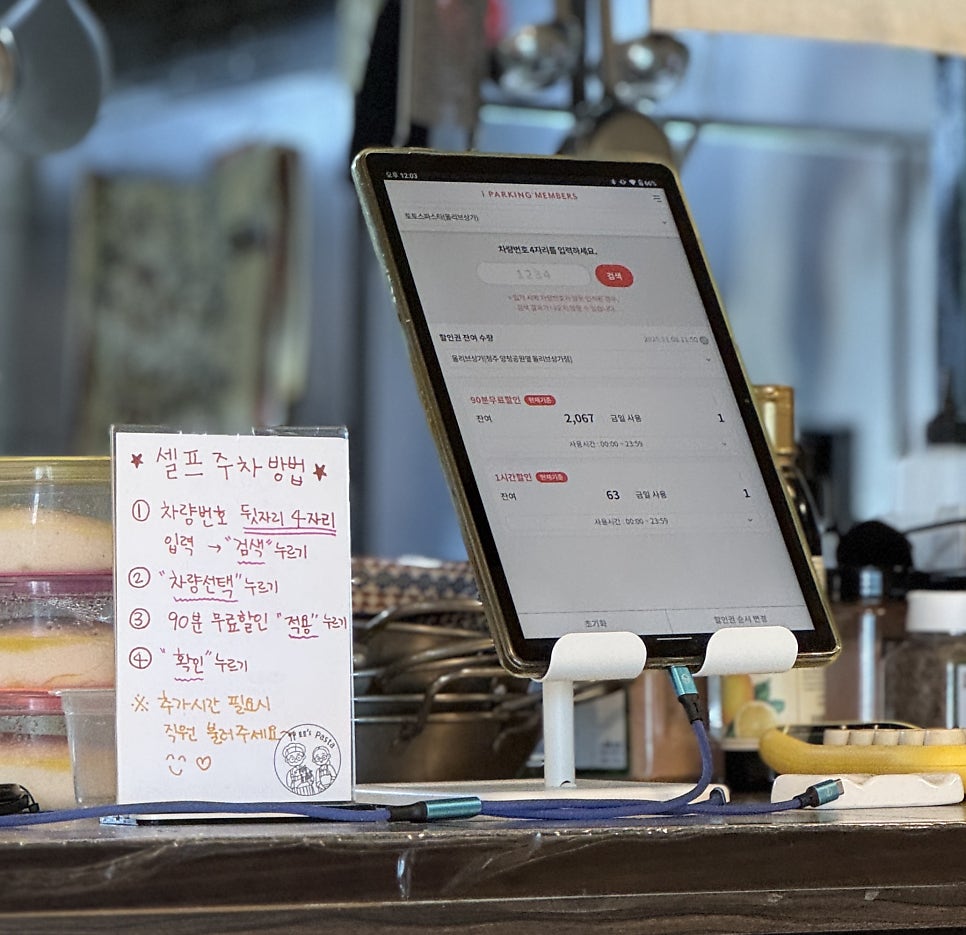 ★ 셀프 주차 방법 ★
① 차량번호 뒷자리 4자리
입력 → "검색" 누르기
② "차량선택" 누르기
③ 90분 무료할인 "적용" 누르기
④ "확인" 누르기
※ 추가시간 필요시
직원 불러주세요
Pasta
오후 12:03
66%
i PARKING MEMBERS
토토스파스타(올리브상가)
차량번호 4자리를 입력하세요.
1234
검색
할인권 잔여 수량
올리브상가(청주 양청공원옆 올리브상가점)
90분무료할인 현재기준
잔여 2,067 금일 사용 1
사용시간 : 00:00 ~ 23:59
1시간할인 현재기준
잔여 63 금일 사용 1
사용시간 : 00:00 ~ 23:59
초기화
할인권 순서 변경